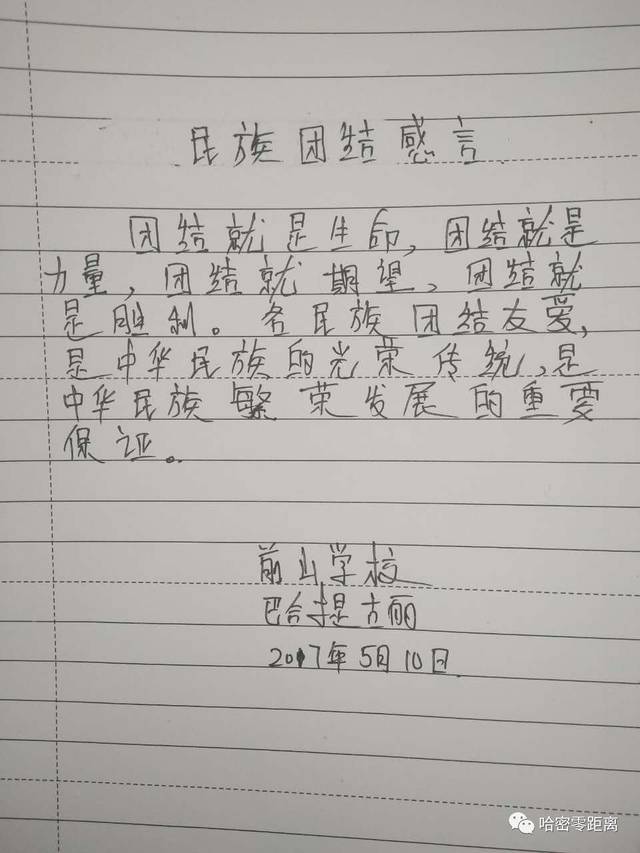 民族团结感言
团结就是生命,团结就是
力量,团结就期望、团结就
是胜利。各民族团结友爱,
是中华民族的光荣传统,是
中华民族繁荣发展的重要
保证。
前山学校
巴合提古丽
2017年5月10日.
哈密零距离